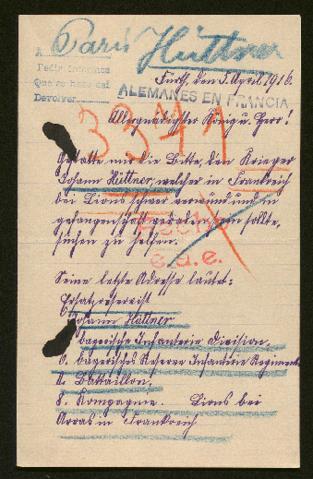 Paris Hüttner
Pedir informes
Que se hace así
Devolver
Fürth, den 5. April 1916.
ALEMANES EN FRANCIA
Allergnädigster König u. Herr!
3341
Gestatte mir die Bitte, den Krieger
Johann Hüttner, welcher in Frankreich
bei Lions schwer verwundet und in
Gefangenschaft geraten sein sollte,
suchen zu helfen.
Seine letzte Adresse lautet:
Ersatzreservist
Johann Hüttner
bayerische Infanterie Division.
6. bayerisches Reserve Infanterie Regiment
2. Battaillon,
8. Kompagnie. Lions bei
Arras in Frankreich